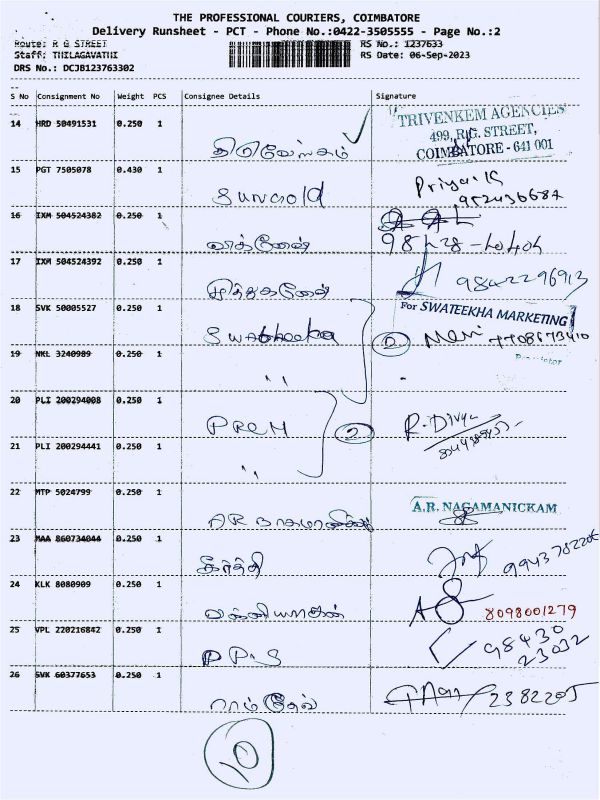 THE PROFESSIONAL COURIERS, COIMBATORE
Delivery Runsheet - PCT - Phone No.:0422-3505555 - Page No.:2
Route: R G STREET RS No.: 1237633
Staff: THILAGAVATHI RS Date: 06-Sep-2023
DRS No.: DCJB123763302
S No Consignment No Weight PCS Consignee Details Signature
14 HRD 50491531 0.250 1
TRIVENKEM AGENCIES
499, R.G. STREET,
COIMBATORE - 641 001
15 PGT 7505078 0.430 1
Priya.K
16 IXM 504524382 0.250 1
17 IXM 504524392 0.250 1
9842296913
18 SVK 50005527 0.250 1
For SWATEEKHA MARKETING
Swatheeka 2 Mani 7708673410
Proprietor
19 NKL 3240989 0.250 1
"
20 PLI 200294008 0.250 1
PREM 2 R. Divya
21 PLI 200294441 0.250 1
"
22 MTP 5024799 0.250 1
A.R. NAGAMANICKAM
23 MAA 860734044 0.250 1
கீர்த்தி 9943782205
24 KLK 8080909 0.250 1
8098001279
25 VPL 220216842 0.250 1
P P. S 98430
23032
26 SVK 60377653 0.250 1
ராம்தேவ் 2382205
10